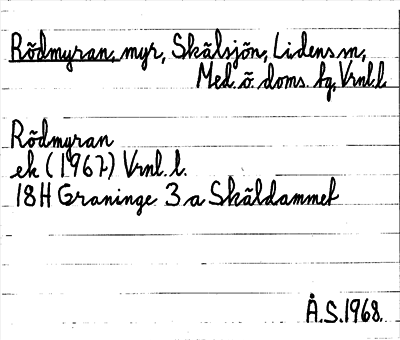 Rödmyran, myr, Skälsjön, Lidens sn,
Med. ö. doms. tg, Vrnl. l.
Rödmyran
ek (1967) Vrnl. l.
18H Graninge 3 a Skäldammet
Å.S. 1968.